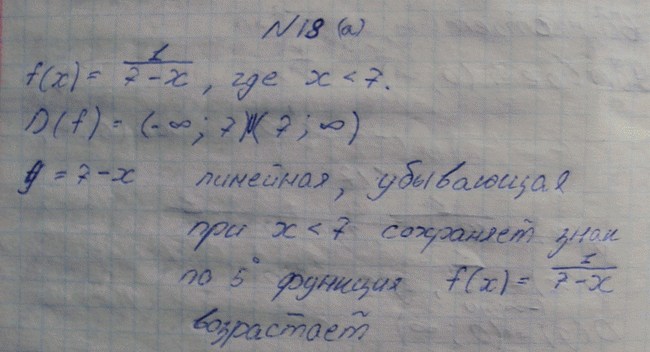 N18 (а)
f(x) = 1/(7-x), где x < 7.
D(f) = (-∞; 7)U(7; ∞)
y = 7-x линейная, убывающая
при x < 7 сохраняет знак
по 5° функция f(x) = 1/(7-x)
возрастает